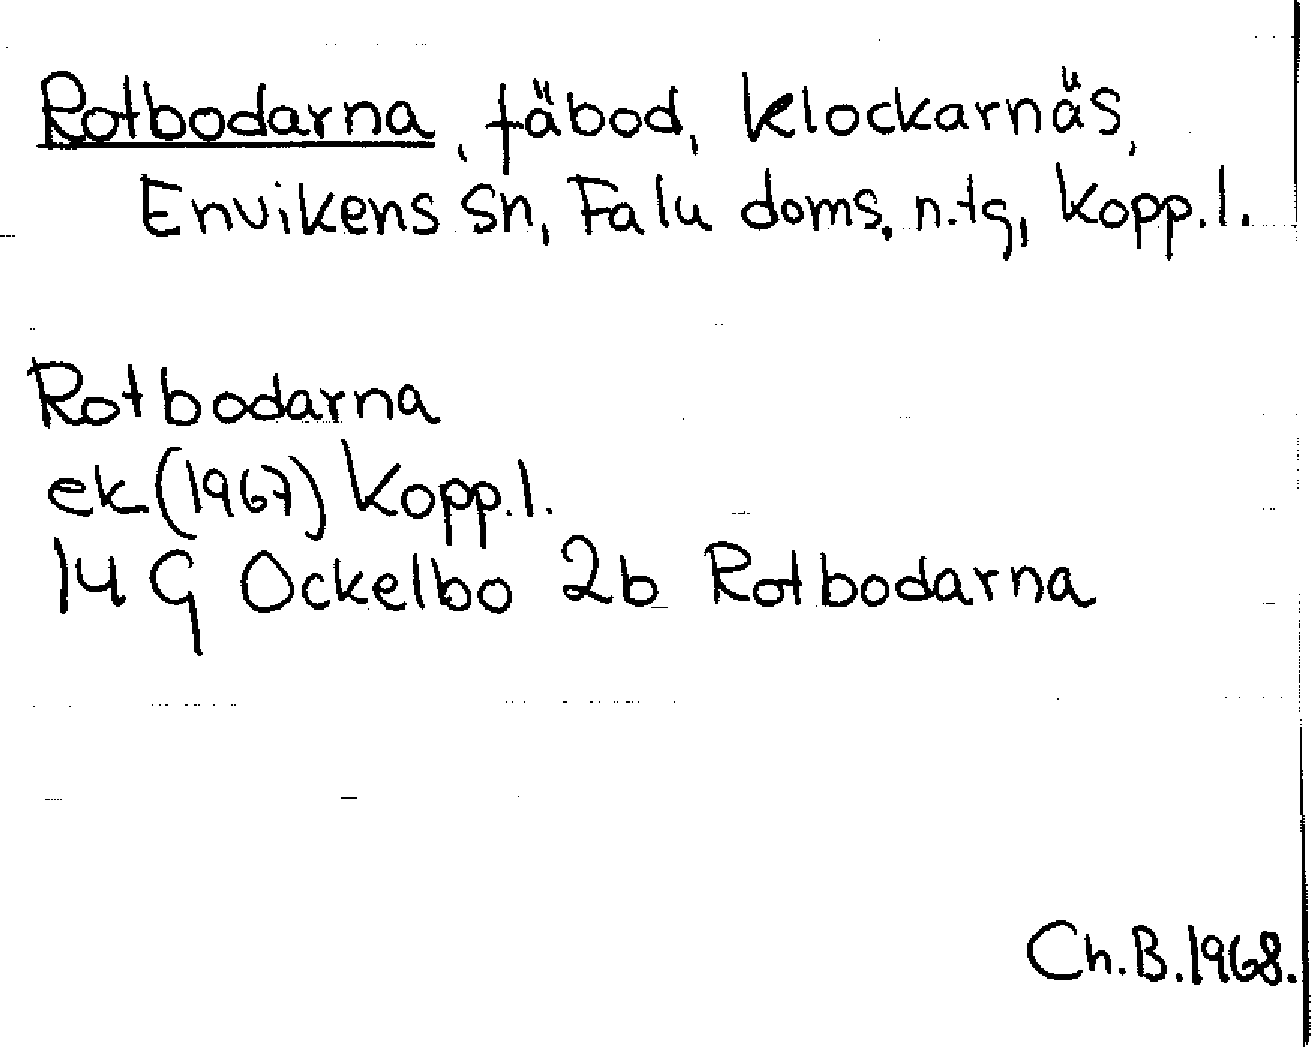 Rotbodarna, fäbod, Klockarnäs,
Envikens sn, Falu doms. n. tg, Kopp. l.
Rotbodarna
ek (1967) Kopp. l.
14 G Ockelbo 2b Rotbodarna
Ch. B. 1968.